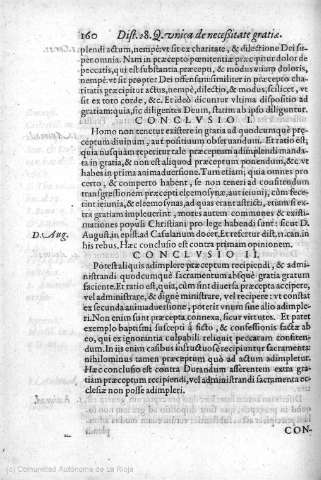 160 Dist. 28. Q. vnica de necessitate gratiæ.
plendi actum, nempè vt sit ex charitate, & dilectione Dei su-
per omnia. Nam in præcepto pœnitentiæ præcipitur dolor de
peccatis, qui est substantia præcepti, & modus talis doloris,
nempè vt sit propter Dei offensam: similiter in præcepto cha-
ritatis præcipitur actus, nempè, dilectio, & modus, scilicet, vt
sit ex toto corde, &c. Et ideò dicuntur vltima dispositio ad
gratiam: quia, sic diligentes Deum, statim ab ipso diliguntur.
CONCLVSIO I.
Homo non tenetur existere in gratia ad quodcumquè præ-
ceptum diuinum, aut positiuum obseruandum. Et ratio est,
quia nusquàm reperitur tale præceptum adimplendi manda-
ta in gratia, & non est aliquod præceptum ponendum, &c. vt
habes in prima animaduersione. Tum etiam; quia omnes pro
certo, & comperto habent, se non teneri ad confitendum
transgressionem præcepti eleemosynæ, aut ieiunij, cùm fece-
rint ieiunia, & eleemosynas, ad quas erant astricti, etiam si ex-
tra gratiam impleuerint, mores autem communes & existi-
mationes populi Christiani pro lege habendi sunt: sicut D.
D. Aug. August. in epist. ad Casulanum docet, Et refertur dist. 11. can. in
his rebus. Hæc conclusio est contra primam opinionem.
CONCLVSIO II.
Potest aliquis adimplere præceptum recipiendi, & admi-
nistrandi quodcumquè Sacramentum absquè gratia gratum
faciente. Et ratio est, quia, cùm sint diuersa præcepta accipere,
vel administrare, & dignè ministrare, vel recipere: vt constat
ex secunda animaduersione, poterit vnum sine alio adimple-
ri. Non enim sunt præcepta connexa, sicut virtutes. Et patet
exemplo baptismi suscepti à ficto, & confessionis factæ ab
eo, qui ex ignorantia culpabili reliquit peccatum confiten-
dum. In iis enim casibus infructuosè recipiantur sacramenta:
nihilominus tamen præceptum quò ad actum adimpletur.
Hæc conclusio est contra Durandum asserentem extra gra-
tiam præceptum recipiendi, vel administrandi sacramenta ec-
clesiæ non posse adimpleri.
CON-
(c) Comunidad Autónoma de La Rioja